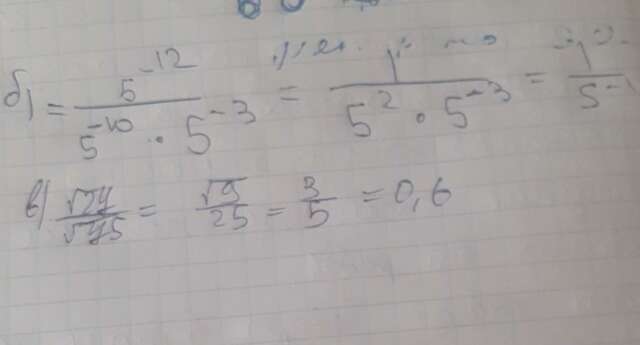 б) = 5^-12 / (5^-10 · 5^-3) = 1 / (5^2 · 5^-3) = 1 / 5^-1
в) √27 / √75 = √9 / 25 = 3/5 = 0,6